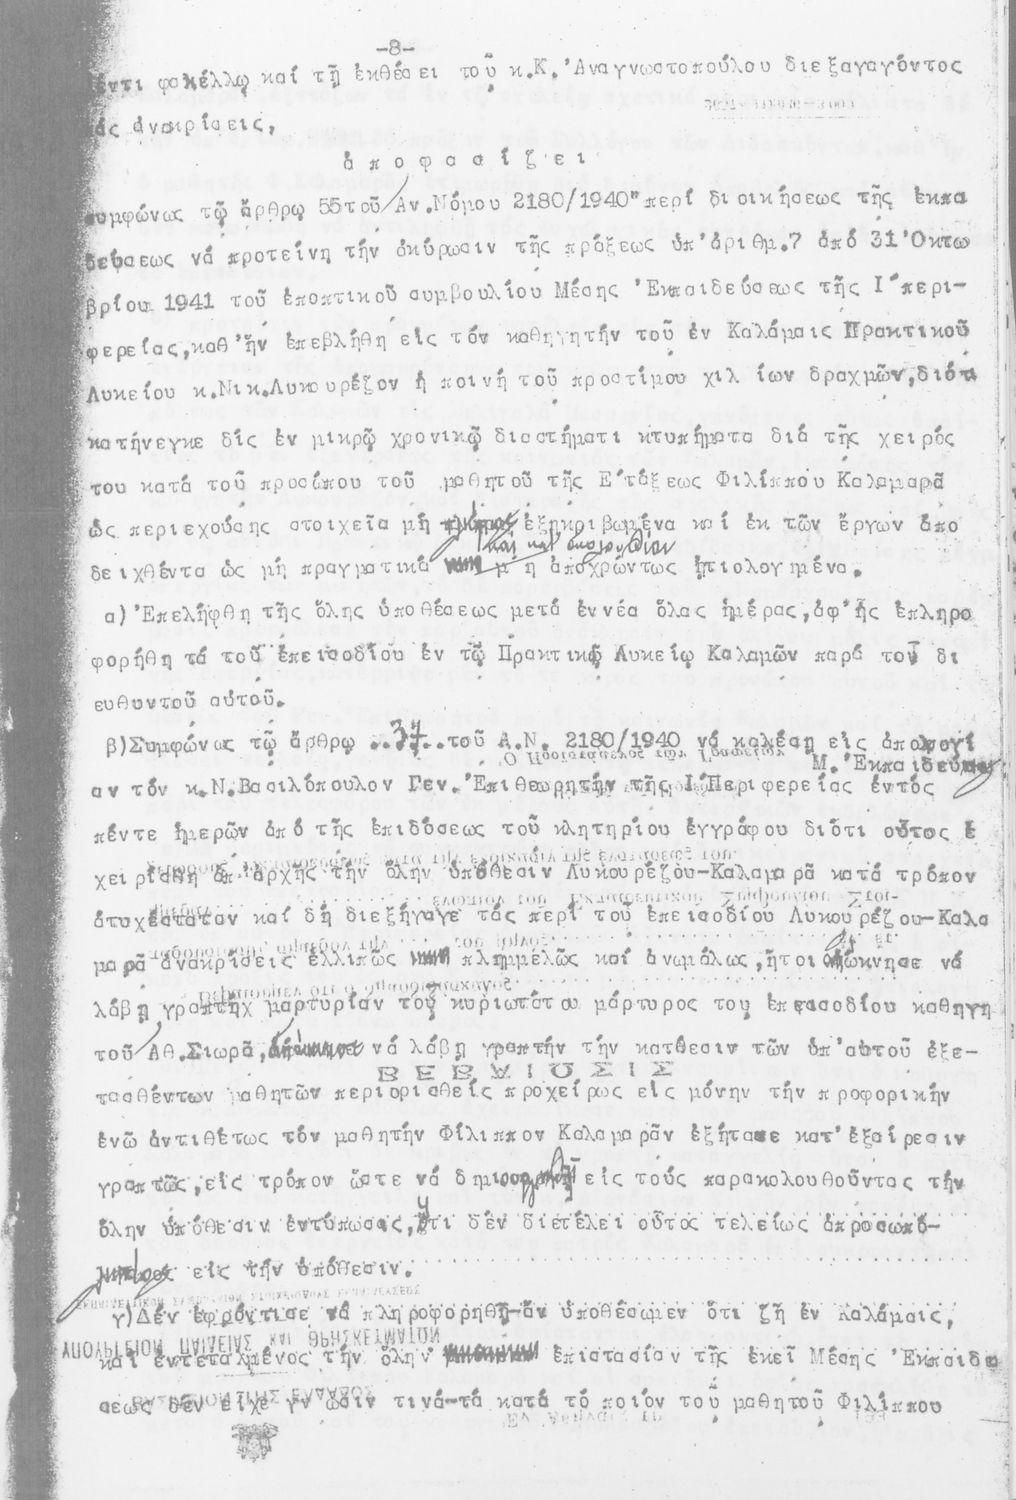 -8-
έντι φακέλλῳ καί τῇ ἐκθέσει τοῦ κ.Κ.Ἀναγνωστοπούλου διεξαγαγόντος
τάς ἀνακρίσεις,
ἀποφασίζει
συμφώνως τῷ ἄρθρῳ 55 τοῦ Αν.Νόμου 2180/1940"περί διοικήσεως τῆς ἐκπα
δεύσεως νά προτείνῃ τήν ἀκύρωσιν τῆς πράξεως ὑπ'ἀριθμ.7 ἀπό 31 Ὀκτω
βρίου 1941 τοῦ ἐποπτικοῦ συμβουλίου Μέσης Ἐκπαιδεύσεως τῆς Ι' περι-
φερείας,καθ'ἥν ἐπεβλήθη εἰς τόν καθηγητήν τοῦ ἐν Καλάμαις Πρακτικοῦ
Λυκείου κ.Νικ.Λυκουρέζον ἡ ποινή τοῦ προστίμου χιλίων δραχμῶν,διότι
κατήνεγκε δίς ἐν μικρῷ χρονικῷ διαστήματι κτυπήματα διά τῆς χειρός
του κατά τοῦ προσώπου τοῦ μαθητοῦ τῆς Ε'τάξεως Φιλίππου Καλαμαρᾶ
ὡς περιεχούσης στοιχεῖα μή ἐξηκριβωμένα καί ἐκ τῶν ἔργων ἀπο
καί κατ' ἀκολουθίαν
δειχθέντα ὡς μή πραγματικά μή ἀποχρώντως ᾐτιολογημένα.
α)Ἐπελήφθη τῆς ὅλης ὑποθέσεως μετά ἐννέα ὅλας ἡμέρας,ἀφ'ἧς ἐπληρο
φορήθη τά τοῦ ἐπεισοδίου ἐν τῷ Πρακτικῷ Λυκείῳ Καλαμῶν παρά τοῦ δι
ευθυντοῦ αὐτοῦ.
β)Συμφώνως τῷ ἄρθρῳ ..37..τοῦ Α.Ν. 2180/1940 νά καλέσῃ εἰς ἀπολογί
Μ. Ἐκπαιδεύσεως
αν τόν κ.Ν.Βασιλόπουλον Γεν.Ἐπιθεωρητήν τῆς Ι'Περιφερείας ἐντός
πέντε ἡμερῶν ἀπό τῆς ἐπιδόσεως τοῦ κλητηρίου ἐγγράφου διότι οὗτος ἐ
χειρίσθη ἀπ'ἀρχῆς τήν ὅλην ὑπόθεσιν Λυκουρέζου-Καλαμαρᾶ κατά τρόπον
ἀτυχέστατον καί δή διεξήγαγε τάς περί τοῦ ἐπεισοδίου Λυκουρέζου-Καλα
μαρᾶ ἀνακρίσεις ἐλλιπῶς πλημμελῶς καί ἀνωμάλως,ἤτοι ὤκνησε νά
λάβῃ γραπτήν μαρτυρίαν τοῦ κυριωτάτου μάρτυρος του ἐπεισοδίου καθηγη
τοῦ Ἀθ.Σιωρᾶ, νά λάβῃ γραπτήν τήν κατάθεσιν τῶν ὑπ'αὐτοῦ ἐξε-
ΒΕΒΑΙΩΣΙΣ
τασθέντων μαθητῶν περιορισθείς προχείρως εἰς μόνην τήν προφορικήν
ἐνῶ ἀντιθέτως τόν μαθητήν Φίλιππον Καλαμαρᾶν ἐξήτασε κατ'ἐξαίρεσιν
γραπτῶς,εἰς τρόπον ὥστε νά δημιουργηθῇ εἰς τούς παρακολουθοῦντας τήν
ὅλην ὑπόθεσιν ἐντύπωσις,ὅτι δέν διετέλει οὗτος τελείως ἀπροσωπό-
ληπτος εἰς τήν ὑπόθεσιν.
γ)Δέν ἐφρόντισε νά πληροφορηθῇ-ἄν ὑποθέσωμεν ὅτι ζῇ ἐν Καλάμαις,
ΥΠΟΥΡΓΕΙΟΝ ΠΑΙΔΕΙΑΣ ΚΑΙ ΘΡΗΣΚΕΥΜΑΤΩΝ
καί ἐντεταλμένος τήν ὅλην ἐπιστασίαν τῆς ἐκεῖ Μέσης Ἐκπαιδε
ΒΑΣΙΛΕΙΟΝ ΤΗΣ ΕΛΛΑΔΟΣ
σεως δέν εἶχε γνῶσιν τινά-τά κατά τό ποιόν τοῦ μαθητοῦ Φιλίππου